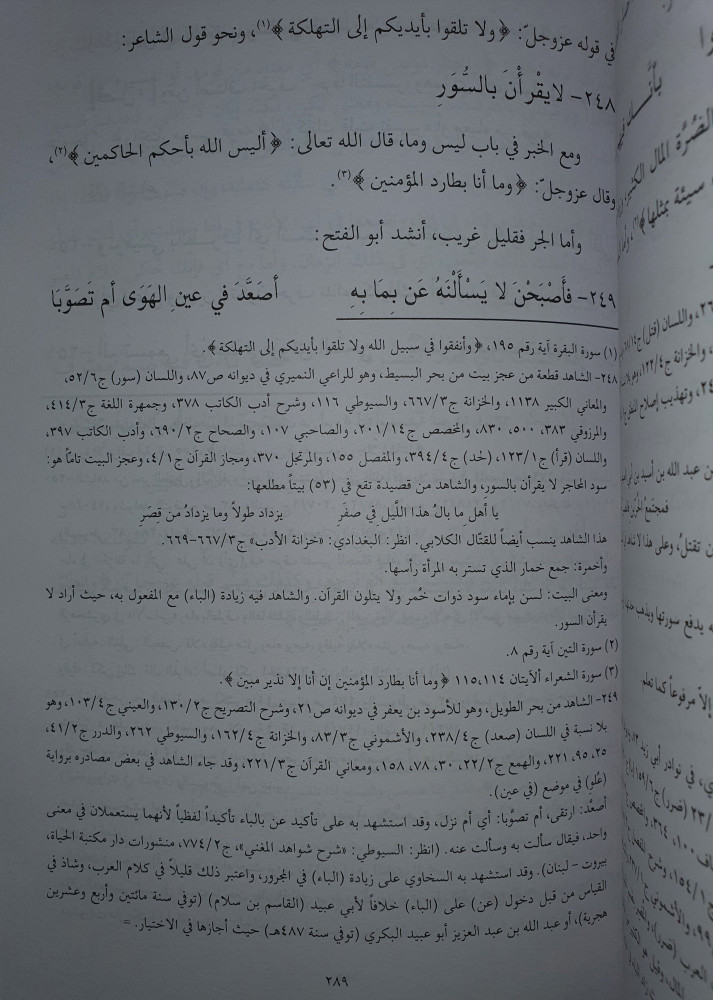 في قوله عزوجلّ: ﴿ولا تلقوا بأيديكم إلى التهلكة﴾(١)، ونحو قول الشاعر:
٢٤٨- لايقْرأْنَ بالسُّوَرِ
ومع الخبر في باب ليس وما، قال الله تعالى: ﴿أليس الله بأحكم الحاكمين﴾(٢)،
وقال عزوجلّ: ﴿وما أنا بطارد المؤمنين﴾(٣).
وأما الجر فقليل غريب، أنشد أبو الفتح:
٢٤٩- فَأَصْبَحْنَ لا يَسْأَلْنَهُ عَن بِمَا بِهِ أصَعَّدَ في عينِ الهَوَى أم تَصَوَّبَا
(١) سورة البقرة آية رقم ١٩٥، ﴿وأنفقوا في سبيل الله ولا تلقوا بأيديكم إلى التهلكة﴾.
٢٤٨- الشاهد قطعة من عجز بيت من بحر البسيط، وهو للراعي النميري في ديوانه ص٨٧، واللسان (سور) ج٥٢/٦،
والمعاني الكبير ١١٣٨، والخزانة ج٦٦٧/٣، والسيوطي ١١٦، وشرح أدب الكاتب ٣٧٨، وجمهرة اللغة ج٤١٤/٣،
والمرزوقي ٣٨٣، ٥٠٠، ٨٣٠، والمخصص ج٢٠١/١٤، والصاحبي ١٠٧، والصحاح ج٦٩٠/٢، وأدب الكاتب ٣٩٧،
واللسان (قرأ) ج١٢٣/١، (لحد) ج٣٩٤/٤، والمفصل ١٥٥، والمرتجل ٣٧٠، ومجاز القرآن ج٤/١، وعجز البيت تاماً هو:
سود المحاجر لا يقرأن بالسور، والشاهد من قصيدة تقع في (٥٣) بيتاً مطلعها:
يا أهل ما بالُ هذا اللَّيل في صفَر يزداد طولاً وما يزدادُ من قصَر
هذا الشاهد ينسب أيضاً للقتّال الكلابي. انظر: البغدادي: «خزانة الأدب» ج٦٦٧/٣-٦٦٩.
وأخمرة: جمع خمار الذي تستر به المرأة رأسها.
ومعنى البيت: لسن بإماء سود ذوات خُمر ولا يتلون القرآن. والشاهد فيه زيادة (الباء) مع المفعول به، حيث أراد لا
يقرأن السور.
(٢) سورة التين آية رقم ٨.
(٣) سورة الشعراء ألآيتان ١١٥،١١٤ ﴿وما أنا بطارد المؤمنين إن أنا إلا نذير مبين﴾.
٢٤٩- الشاهد من بحر الطويل، وهو للأسود بن يعفر في ديوانه ص٢١، وشرح التصريح ج١٣٠/٢، والعيني ج١٠٣/٤، وهو
بلا نسبة في اللسان (صعد) ج٢٣٨/٤، والأشموني ج٨٣/٣، والخزانة ج١٦٢/٤، والسيوطي ٢٦٢، والدرر ج٤١/٢،
٢٥، ٩٥، ٢٢١، والهمع ج٢٢/٢، ٣٠، ٧٨، ١٥٨، ومعاني القرآن ج٢٢١/٣، وقد جاء الشاهد في بعض مصادره برواية
(عُلو) في موضع (في عين).
أصعَّد: ارتقى، أم تصوَّبا: أي أم نزل، وقد استشهد به على تأكيد عن بالباء تأكيداً لفظياً لأنهما يستعملان في معنى
واحد، فيقال سألت به وسألت عنه. (انظر: السيوطي: «شرح شواهد المغني»، ج٧٧٤/٢، منشورات دار مكتبة الحياة،
بيروت - لبنان). وقد استشهد به السخاوي على زيادة (الباء) في المجرور، واعتبر ذلك قليلاً في كلام العرب، وشاذ في
القياس من قبل دخول (عن) على (الباء) خلافاً لأبي عبيد (القاسم بن سلام) (توفي سنة مائتين وأربع وعشرين
هجرية)، أو عبد الله بن عبد العزيز أبو عبيد البكري (توفي سنة ٤٨٧هـ) حيث أجازها في الاختيار. =
٢٨٩